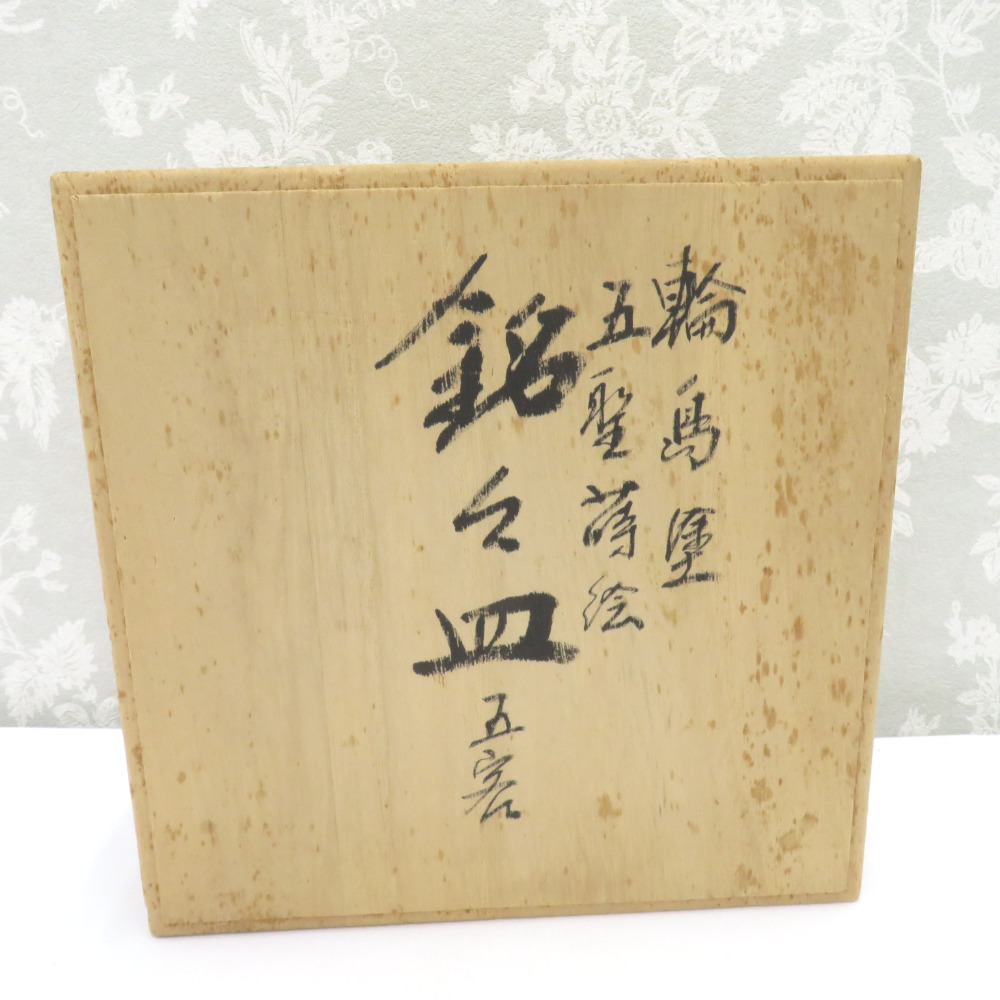 輪島塗
五聖蒔絵
銘々皿五客